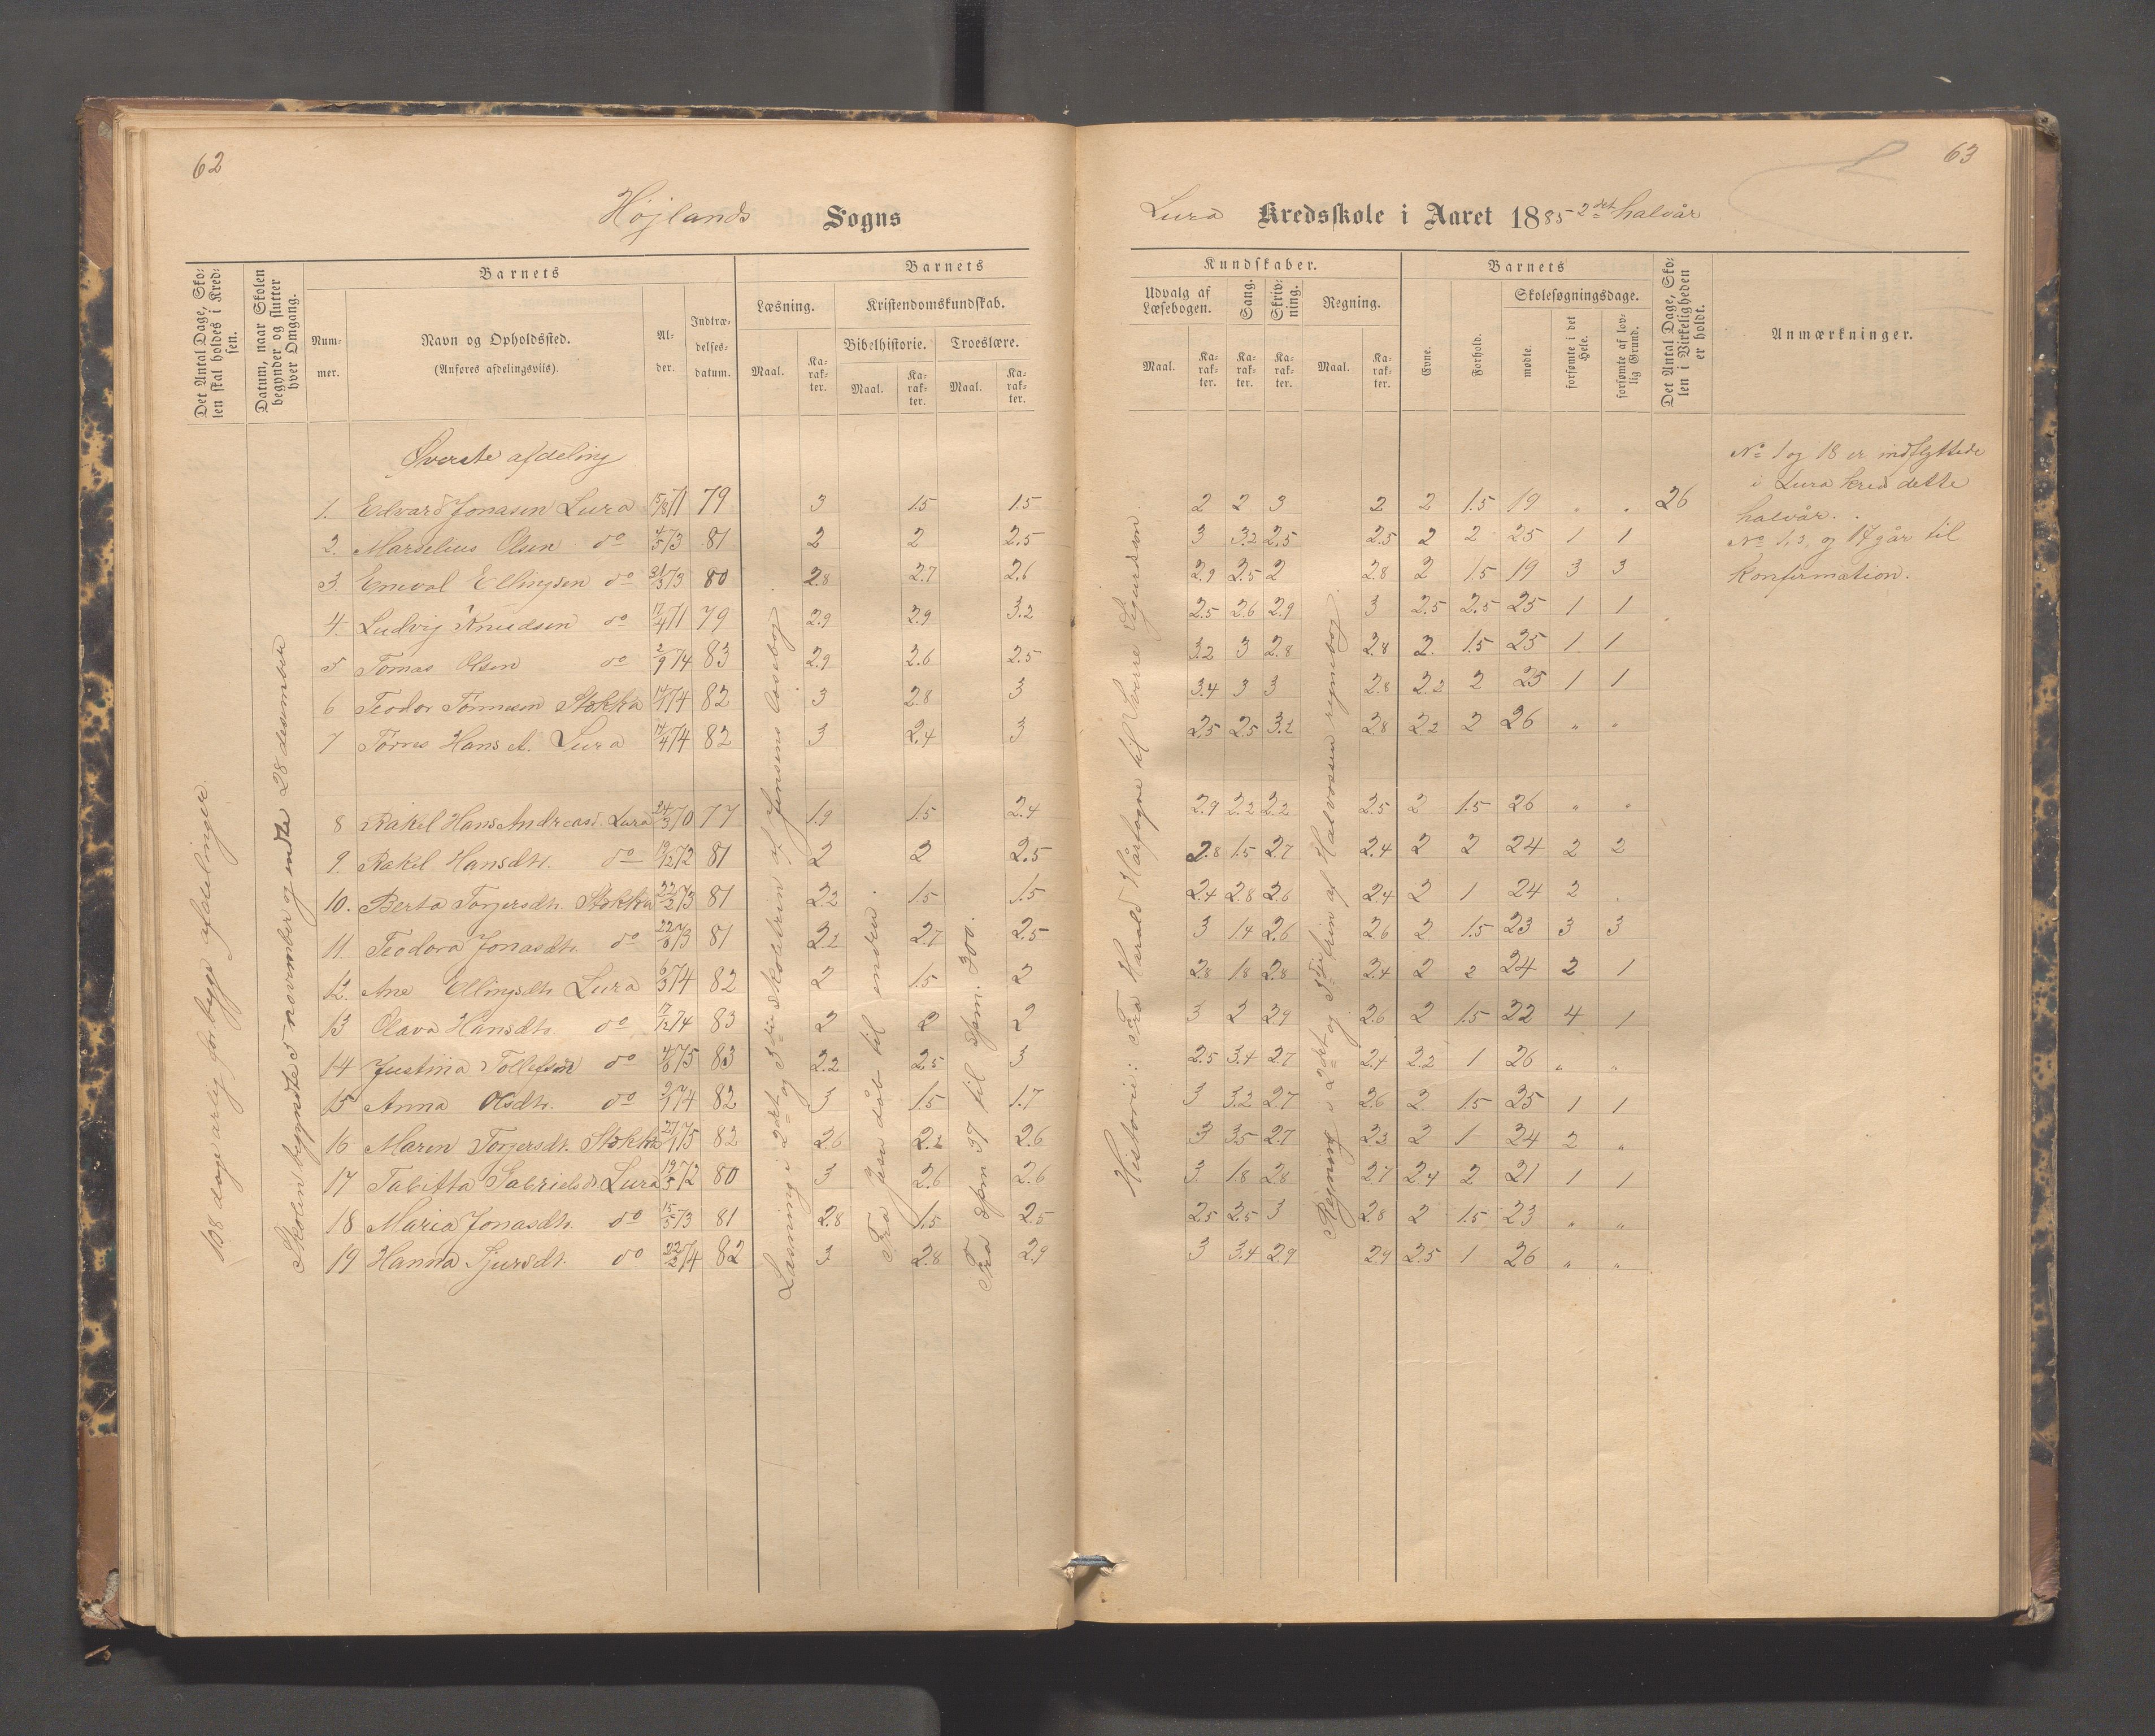 62
Højlands Sogns
Det Antal Dage, Skolen skal holdes i Kredsen.
Datum, naar Skolen begynder og slutter hver Omgang.
Barnets
Nummer.
Navn og Opholdssted.
(Anføres afdelingsviis).
Alder.
Indtrædelsesdatum.
Barnets
Læsning.
Kristendomskundskab.
Bibelhistorie.
Troeslære.
Maal.
Karakter.
Maal.
Karakter.
Maal.
Karakter.
138 dage årlig for begge afdelinger.
Skolen begyndte 5 november og endte 28 desember
Øverste afdeling
1. Edvard Jonasen Lura 15/8 71 79 3 1.5 1.5
2. Marselius Olsen do 4/5 73 81 2 2 2.5
3. Enevol Ellingsen do 31/5 73 80 2.8 2.7 2.6
4. Ludvig Knudsen do 17/4 71 79 2.9 2.9 3.2
5 Tomas Olsen do 2/9 74 83 2.9 2.6 2.5
6 Teodor Tønnesen Stokka 74 82 3 2.8 3
7 Tørres Hans A. Lura 14/4 74 82 3 2.4 3
8 Rakel Hans Andreasd. Lura 24/3 70 77 1.9 1.5 2.4
9. Rakel Hansdtr. do 19/12 72 81 2 2 2.5
10. Berta Torgersdtr. Stokka 22/3 73 81 2.2 1.5 1.5
11. Teodora Jonasdtr. do 73 81 2.2 2.7 2.5
12. Ane Ellingsdtr. Lura 6/3 74 82 2 1.5 2
13 Olava Hansdtr. do 17/12 74 83 2 2 2
14 Justina Tollefsen do 75 83 2.2 2.5 3
15 Anna Olsdtr. do 74 82 3 1.5 1.7
16 Maren Torgersdtr. Stokka 27/1 75 82 2.6 2.2 2.6
17 Tabitta Gabrielsd. Lura 19/5 72 80 3 2.6 2.6
18 Maria Jonasdtr. do 15/5 73 81 2.8 1.5 2.5
19 Hanna Sjursdtr. do 22/2 74 82 3 2.8 2.9
Læsning i 2det og 3die skoletrin af Jensens læsebog.
Fra Jesu dåb til enden.
Fra spm. 37 til spm. 300.
63
Lura Kredsskole i Aaret 1885 2det halvår
Kundskaber.
Udvalg af Læsebogen.
Sang.
Skrivning.
Regning.
Maal.
Karakter.
Karakter.
Karakter.
Maal.
Karakter.
Barnets
Evne.
Forhold.
Skolesøgningsdage.
mødte.
forsømte i det Hele.
forsømte af lovlig Grund.
Det Antal Dage, Skolen i Virkeligheden er holdt.
Anmærkninger.
Historie: Fra Harald Hårfagre til Sverre Sigurdson.
Regning i 2det og 3die trin af Halvorsen regnebog.
2 2 3 2 2 1.5 19 " " 26
3 3.2 2.5 2.5 2 2 25 1 1
2.9 2.5 2 2.8 2 1.5 19 3 3
2.5 2.6 2.9 3 2.5 2.5 25 1 1
3.2 3 2.8 2.8 2. 1.5 25 1 1
3.4 3 3 2.8 2.2 2 25 1 1
2.5 2.5 3.2 2.8 2.2 2 26 " "
2.9 2.2 2.2 2.5 2 1.5 26 " "
2.8 1.5 2.7 2.4 2 2 24 2 2
2.4 2.8 2.6 2.4 2 1 24 2 .
3 1.4 2.6 2.6 2 1.5 23 3 3
2.8 1.8 2.8 2.4 2 2 24 2 1
3 2 2.9 2.6 2 1.5 22 4 1
2.5 3.4 2.7 2.4 2.2 1 26 " "
3 3.2 2.7 2.6 2 1.5 25 1 1
3 3.5 2.7 2.3 2 1 24 2 "
3 1.8 2.8 2.7 2.4 2 21 1 1
2.5 2.5 3 2.8 2 1.5 23 " "
3 3.4 2.9 2.9 2.5 1 26 " "
No 1 og 18 er indflyttede
i Lura kreds dette
halvår.
No 1, 3, og 17 går til
konfirmation.